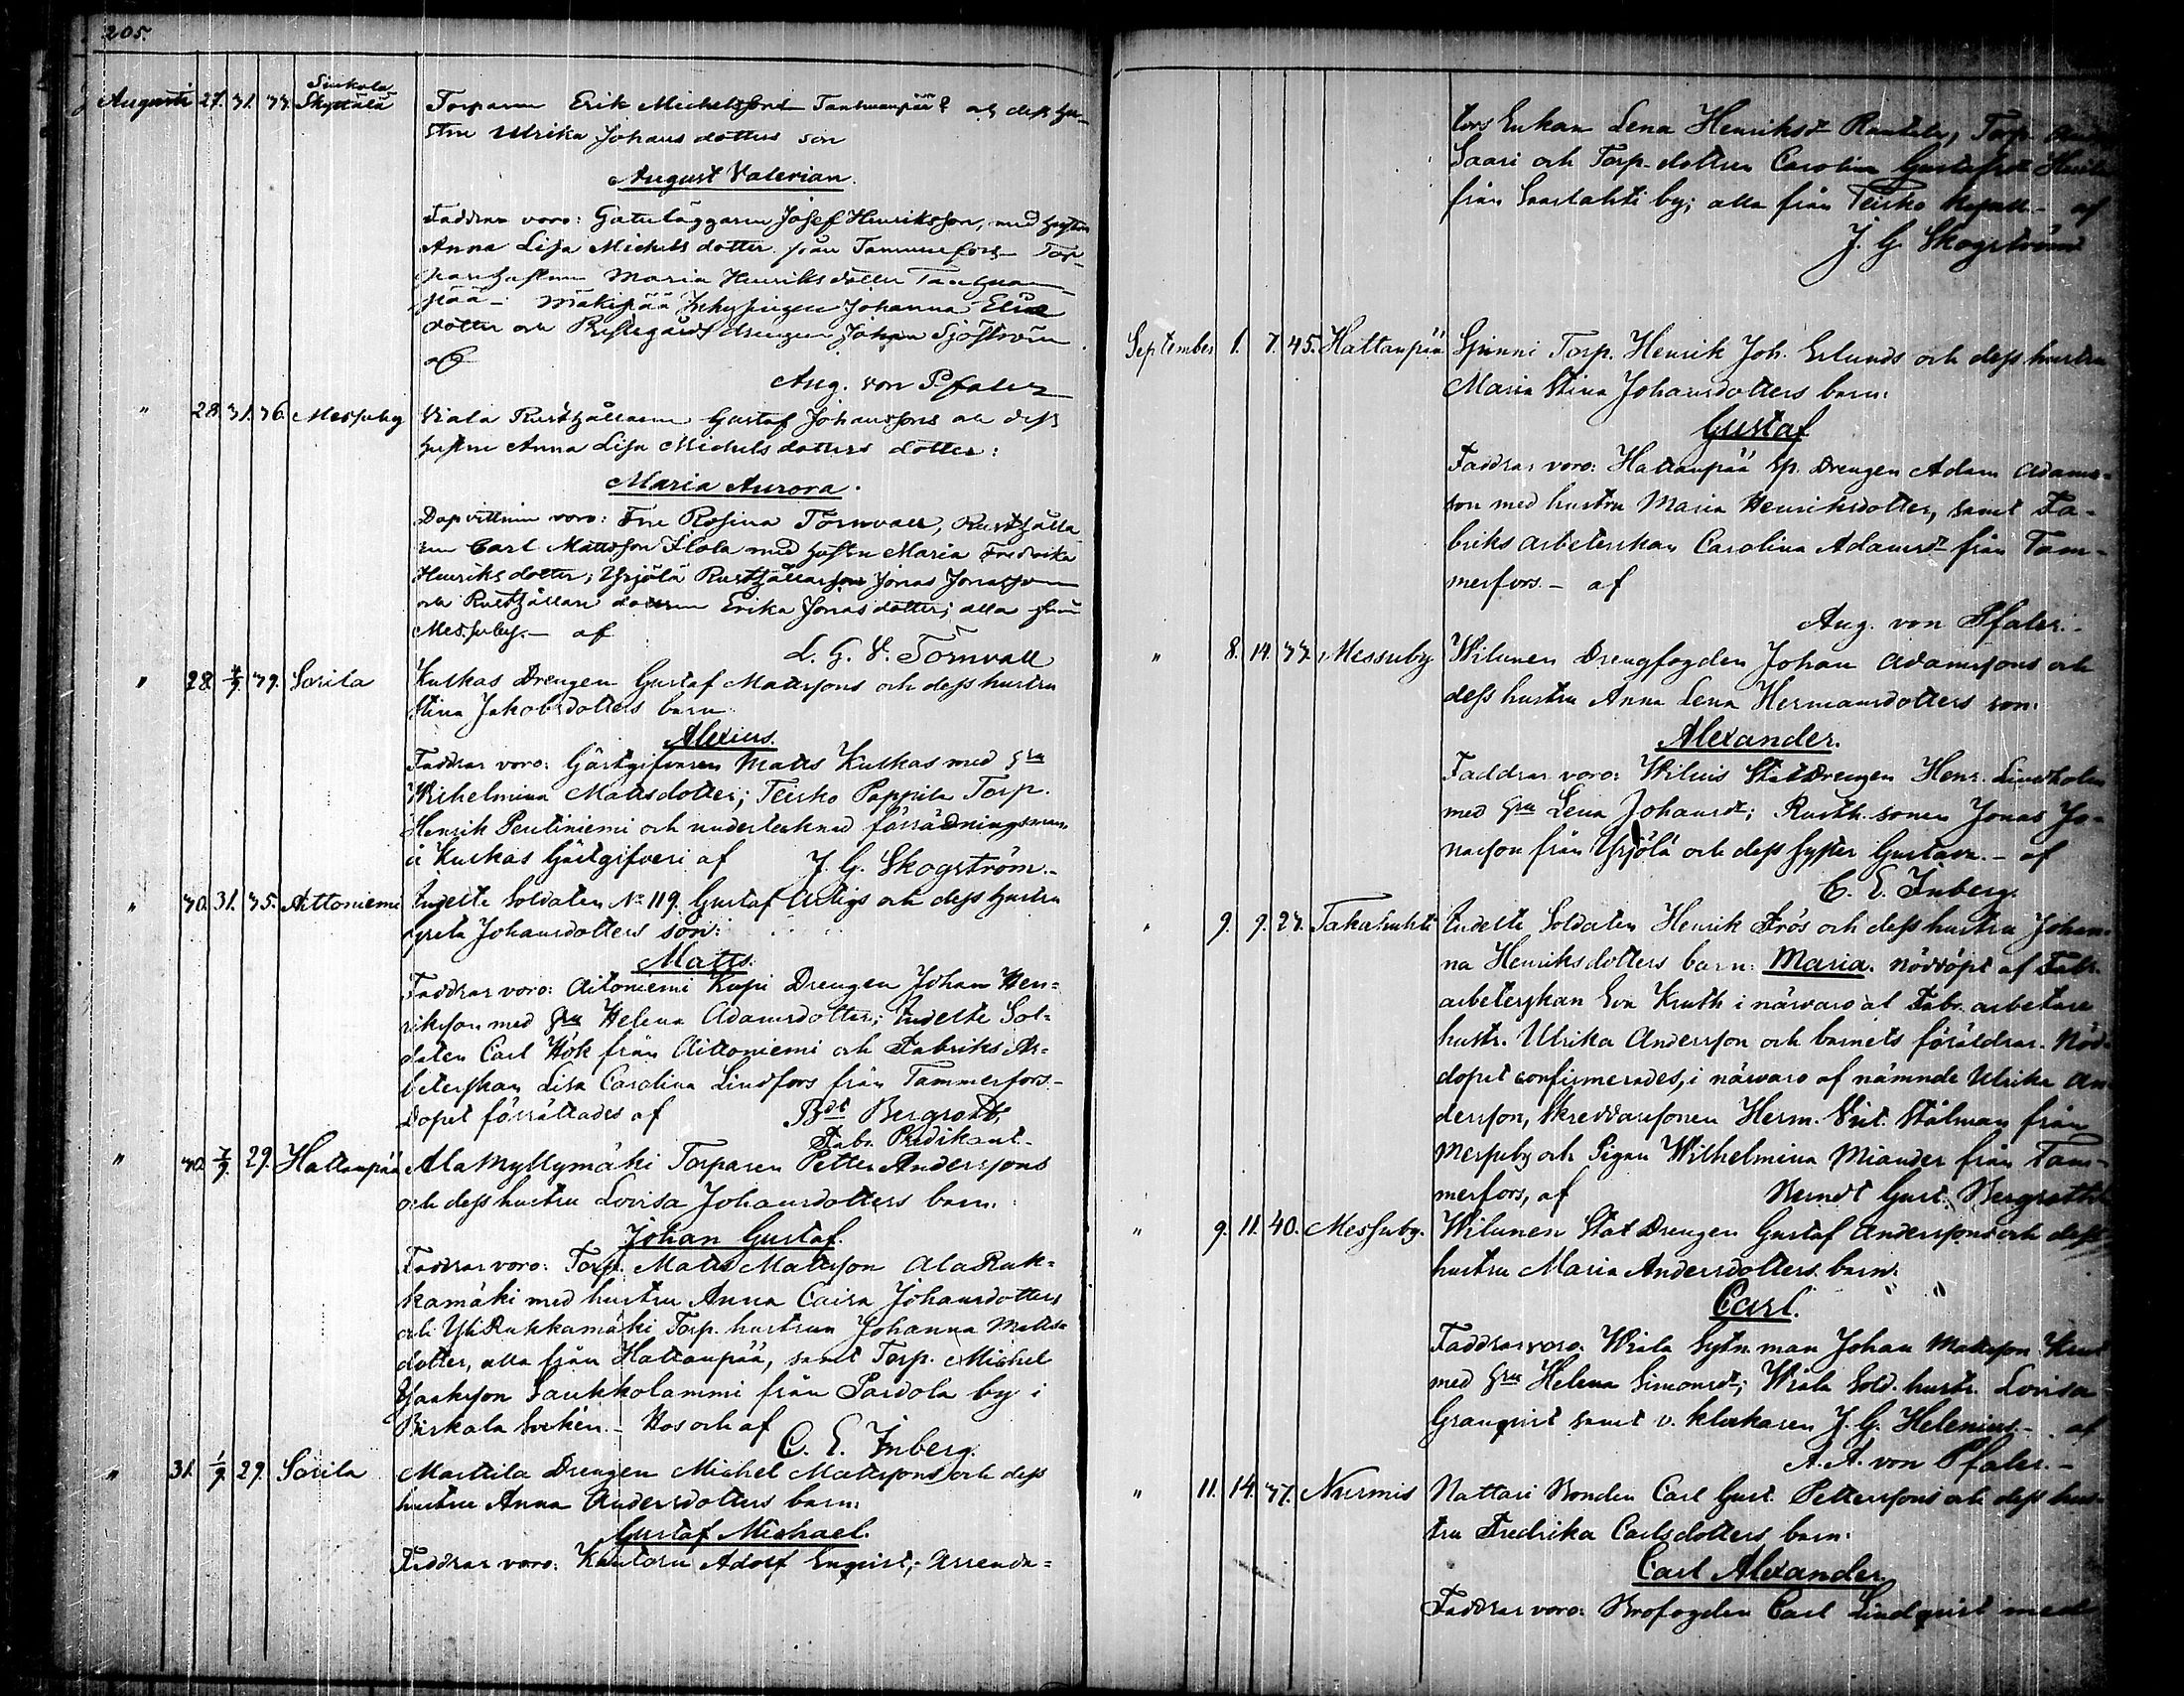 205.
Augusti 27. 31. 33. Sinkola
Skyttälä
Torparen Erik Michelssons Tanhuanpää och dess hu-
stru Ulrika Johans dotters son
August Valerian.
Faddrar voro: Gatuläggaren Josef Henriksson, med hustru
Anna Lisa Michels dotter från Tammerfors Tor-
parehustrun Maria Henriksdotter Tanhuan-
pää - Mäkipää Johanna
dotter och drengen Johan Sjöström
af
Aug. von Pfaler
" 28. 31. 36. Messuby Viala Rusthållaren Gustaf Johanssons och dess
hustru Anna Lisa Michels dotters dotter:
Maria Aurora.
Dopvittnen voro: Fru Rosina Törnvall, Rusthålla
ren Carl Mattsson Flola med hustru Maria Fredrika
Henriks dotter; Yrjölä Rusthållarson Jonas Jonasson
och Rusthållare dottren Erika Jonasdotter; alla från
Messuby. - af
L. G. V. Törnvall
" 28. 4/9. 39. Sorila Kulkas Drengen Gustaf Mattssons och dess hustru
Stina Jakobsdotters barn
Alexius.
Faddrar voro: Gästgifvaren Matts Kulkas med hru
Wilhelmina Mattsdotter; Teisko Pappila Torp.
Henrik Pentiniemi och undertecknad
i Kulkas Gästgifveri af J. G. Skogström.-
" 30. 31. 35. Aittoniemi Indelte Soldaten No 119. Gustaf Artigs och dess hustru
Greta Johansdotters son:
Matts.
Faddrar voro: Aitoniemi Kupi Drengen Johan Hen-
riksson med hru Helena Adamsdotter; Indelte Sol-
daten Carl Hök från Aittoniemi och Fabriks Ar-
beterskan Lisa Carolina Lindfors från Tammerfors.-
Dopet förrättades af Bdt Bergroth,
Fabr. Predikant.
" 30. 7/9. 29. Hattanpää Ala Myllymäki Torparen Petter Anderssons
och dess hustru Lovisa Johansdotters barn.
Johan Gustaf.
Faddrar voro: Torp. Matts Mattsson AlaRuk-
kamäki med hustru Anna Caisa Johansdotter
och YliRukkamäki Torp. hustrun Johanna Matts
dotter, alla från Hattanpää, samt Torp. Michel
Isaksson Laukkolammi från Pardola by i
Birkala Socken. - Hos och af
C. E. Inberg.
" 31. 1/9. 29. Sorila Marttila Drengen Michel Mattssons och dess
hustru Anna Andersdotters barn:
Gustaf Michael.
Faddrar voro: Kantorn Adolf Enqvist; Arrenda-
tors Enkan Lena Henriksdt Rautala, Torp.
Saari och Torp-dottren Carolina Gustafsdt
från Saarlahti by; alla från Teisko kapell.- af
J. G. Skogström
September 1. 7. 45. Hattanpää Spinni Torp. Henrik Joh. Erlunds och dess hustru
Maria Stina Johansdotters barn:
Gustaf
Faddrar voro: Hattanpää Sp. Drengen Adam Adams-
son med hustru Maria Henriksdotter, samt Fa-
briks arbeterskan Carolina Adamsdt från Tam-
merfors. - af
Aug. von Pfaler.-
" 8. 14. 33. Messuby Wilunen Drengfogden Johan Adamssons och
dess hustru Anna Lena Hermansdotters son:
Alexander.
Faddrar voro: Wiluis StatDrengen Henr. Lindholm
med hru Lena Johansdt; Rusth. sonen Jonas Jo-
nasson från Yrjölä och dess syster Gustava. - af
C. E. Inberg.
" 9. 9. 23. Takahuhti Indelte Soldaten Henrik Frös och dess hustru Johan-
na Henriksdotters barn: Maria. Nöddöpt af Fabr.
arbeterskan Eva Kruth i närvaro af Fabr. arbetare
hustr. Ulrika Andersson och barnets föräldrar. Nöd-
dopet confirmerades, i närvaro af nämnde Ulrika An-
dersson, Skreddaresonen Herm. Vict. Stålman från
Messuby och Pigan Wilhelmina Miander från Tam-
merfors, af Berndt Gust. Bergroth
" 9. 11. 40. Messuby. Wilunen Stat Drengen Gustaf Anderssons och dess
hustru Maria Andersdotters barn:
Carl.
Faddrar voro: Wiala Sytn. man Johan Mattsson
med hru Helena Simonsdt; Wiala Sold. hustr. Lovisa
Granqvist samt v. klockaren J. G. Helenius.- af
A. A. von Pfaler.-
" 11. 14. 37. Nurmis Nattari Bonden Carl Gust. Petterssons och dess hus-
tru Fredrika Carlsdotters barn:
Carl Alexander.
Faddrar voro: Brofogden Carl Lindqvist med